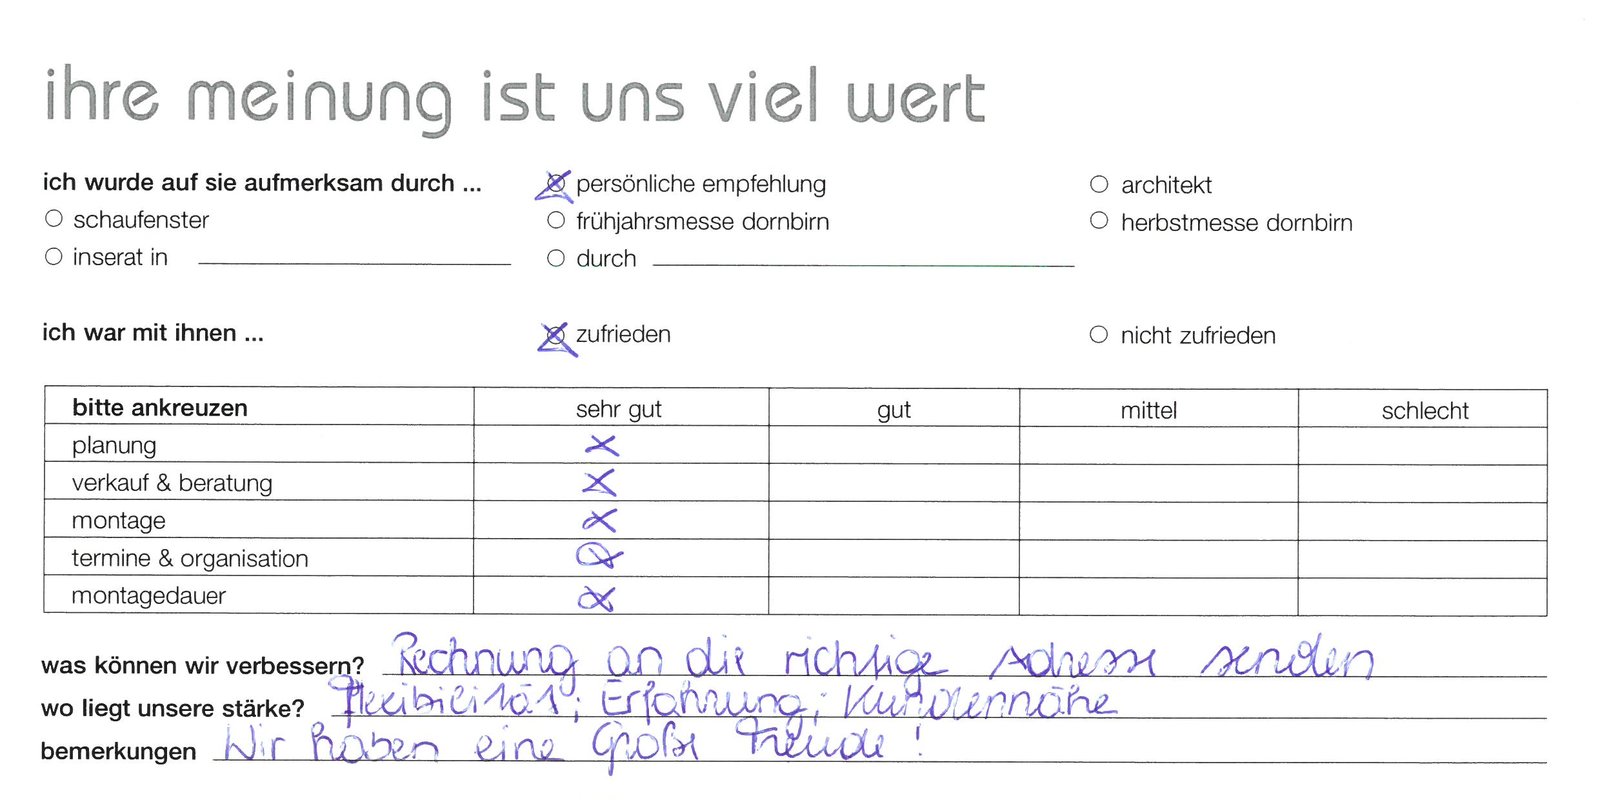 ihre meinung ist uns viel wert
ich wurde auf sie aufmerksam durch ... persönliche empfehlung architekt
schaufenster frühjahrsmesse dornbirn herbstmesse dornbirn
inserat in durch
ich war mit ihnen ... zufrieden nicht zufrieden
bitte ankreuzen sehr gut gut mittel schlecht
planung
verkauf & beratung
montage
termine & organisation
montagedauer
was können wir verbessern? Rechnung an die richtige Adresse senden
wo liegt unsere stärke? Flexibilität; Erfahrung; Kundennähe
bemerkungen Wir haben eine Große Freude!